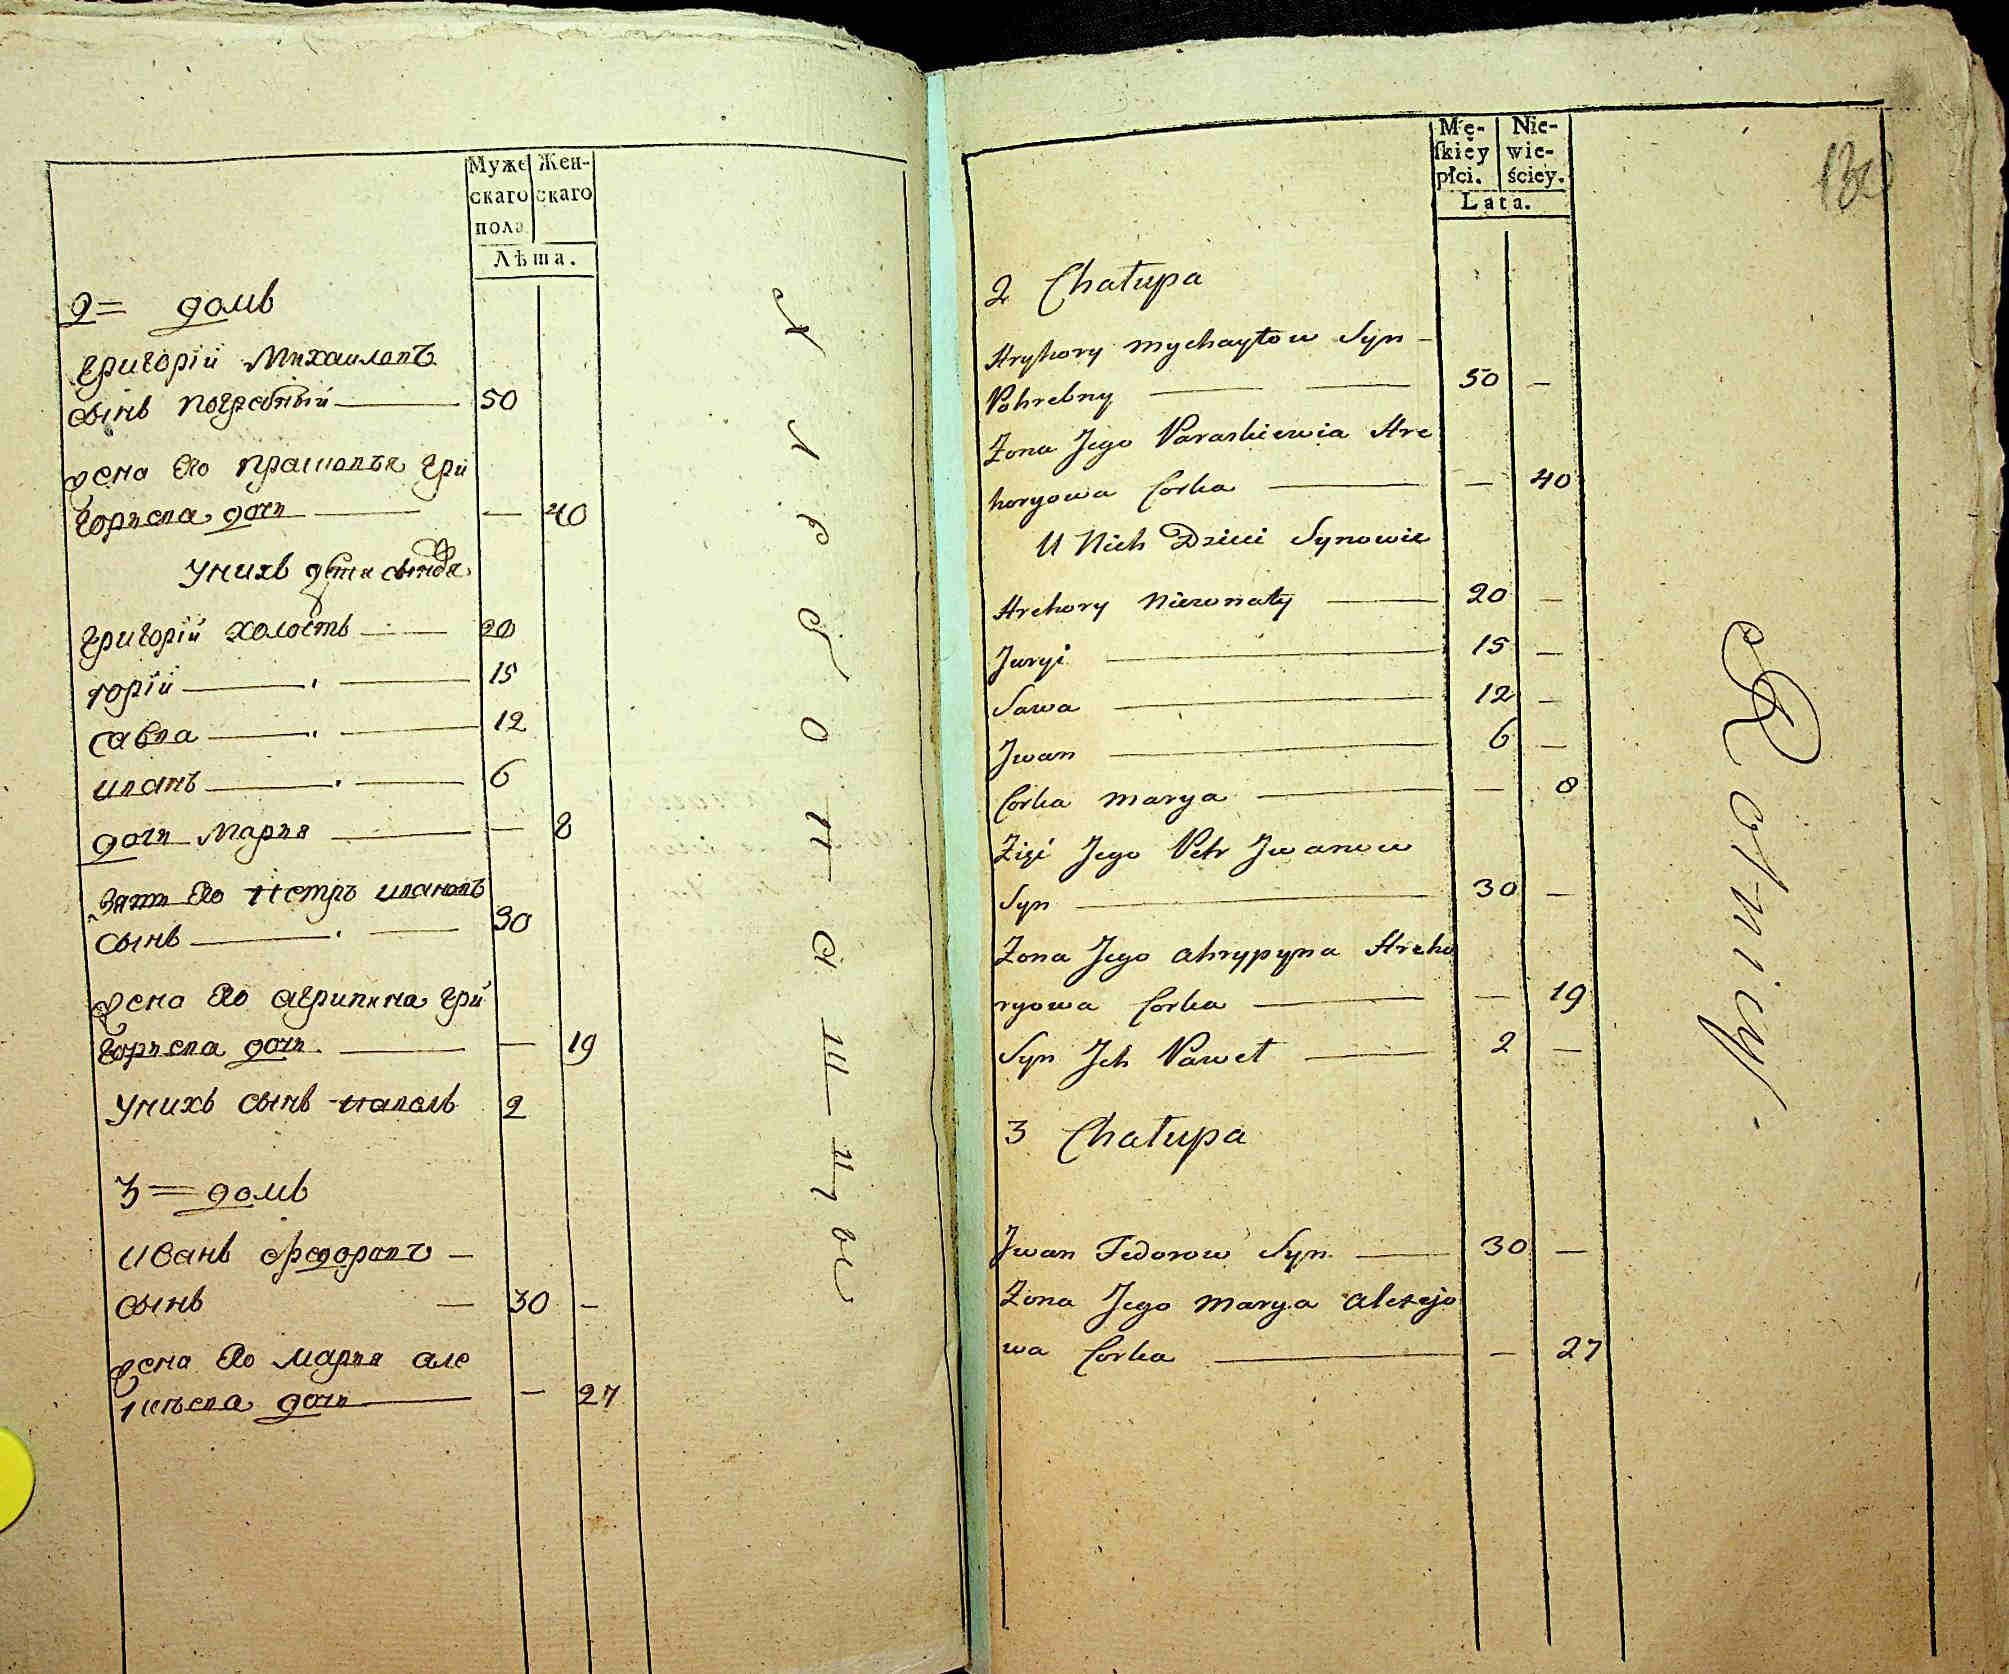 Муже Жен-
скаго скаго
пола
Лѣта.
2= домъ
Григорій Михаиловъ
сынъ погребный — 50
жена его Прасковья Гри
горьева дочь — — 40
у нихъ дѣти сыновья
Григорій холостъ — 20
Юрій — 15
Савва — 12
Иванъ — 6
дочь Марья — — 8
Зять его Петръ Ивановъ
сынъ — 30
жена его Агрипина Гри
горьева дочь — — 19
у нихъ сынъ Павелъ 2
3= домъ
Иванъ Федоровъ —
сынъ — 30 —
жена его Марья Але
ксѣева дочь — — 27
Mę- Nie-
skiey wie-
płci. ściey.
Lata.
2 Chałupa
Hryhory Mychayłow Syn -
Pohrebny — — 50 —
Żona Jego Paraskiewia Hre
horyowa Corka — — 40
U Nich Dzieci Synowie
Hrehory Nieżonaty — 20 —
Juryi — 15 —
Sawa — 12 —
Jwan — 6 —
Corka Marya — — 8
Zięć Jego Petr Jwanow
Syn — 30 —
Żona Jego Ahrypyna Hreho
ryowa Corka — — 19
Syn Jch Paweł — 2 —
3 Chałupa
Jwan Fedorow Syn — 30 —
Żona Jego Marya Alexejo
wa Corka — — 27
Robotnicy.